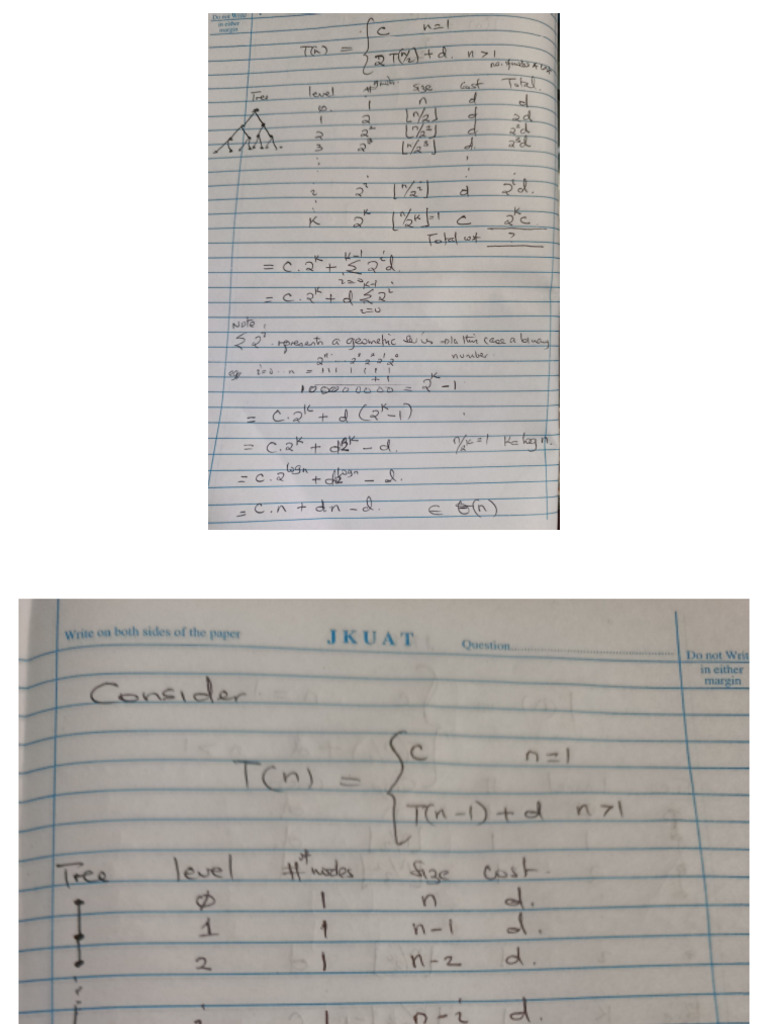 Do not Write
in either
margin
T(n) = { c n=1
2T(n/2) + d. n>1
Tree level # nodes size cost Total
0 1 n d d
1 2 ⌊n/2⌋ d 2d
2 2² ⌊n/2²⌋ d 2²d
3 2³ ⌊n/2³⌋ d. 2³d
i 2^i ⌊n/2^i⌋ d 2^i d.
K 2^K ⌊n/2^K⌋=1 C 2^K C
Total cost ?
= C.2^K + Σ_{i=0}^{K-1} 2^i d.
= C.2^K + d Σ_{i=0}^{K-1} 2^i
Note
Σ 2^i represents a geometric in this case a binary
number
eg i=0 n = 1 1 1 1 1 1 1
+ 1
100000000 = 2^K - 1
= C.2^K + d (2^K - 1)
= C.2^K + d2^K - d. n/2^K = 1 K = log n.
= C.2^{log n} + d2^{log n} - d.
= C.n + dn - d. ∈ Θ(n)
Write on both sides of the paper JKUAT Question
Do not Writ
in either
margin
Consider
T(n) = { C n=1
T(n-1) + d n>1
Tree level # nodes size cost.
0 1 n d.
1 1 n-1 d.
2 1 n-2 d.
i 1 n-i d.